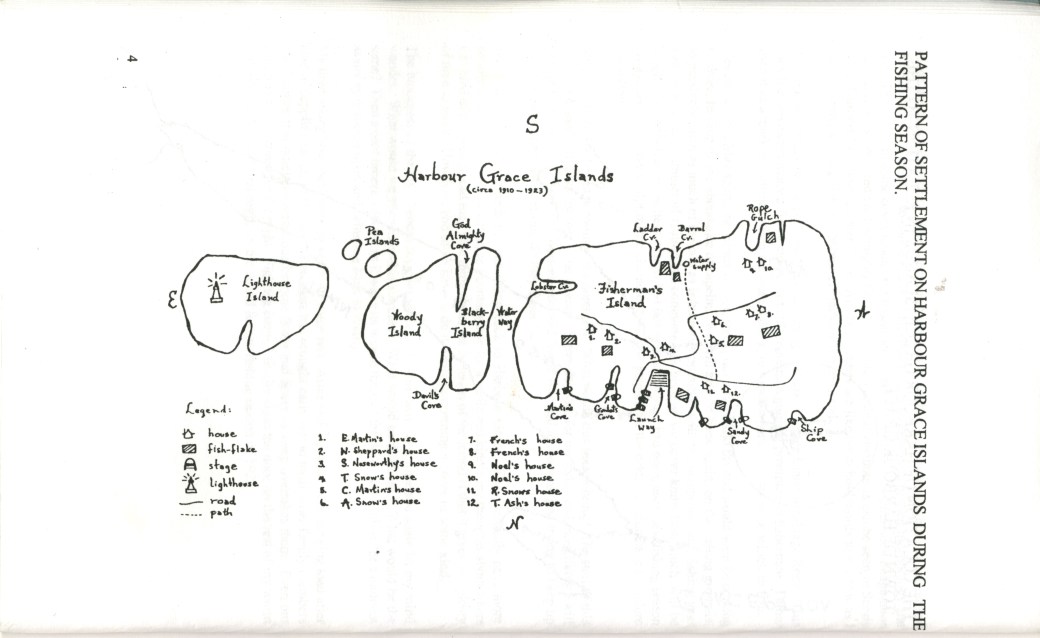 PATTERN OF SETTLEMENT ON HARBOUR GRACE ISLANDS DURING THE
FISHING SEASON.
4
S
Harbour Grace Islands
(circa 1910-1923)
E
Lighthouse
Island
Pea
Islands
God
Almighty
Cove
Woody
Island
Black-
berry
Island
Devil's
Cove
Water
Way
Lobster Cr.
Fisherman's
Island
Ladder
Cr.
Barrel
Cr.
Water
supply
Rope
Gulch
9.
10.
1.
2.
3.
5.
6.
7.
8.
11.
12.
Martin's
Cove
Cove
Launch
Way
Sandy
Cove
Ship
Cove
Legend:
house
fish-flake
stage
lighthouse
road
path
1. E. Martin's house
2. W. Sheppard's house
3. S. Noseworthy's house
4. T. Snow's house
5. C. Martin's house
6. A. Snow's house
7. French's house
8. French's house
9. Noel's house
10. Noel's house
11. R. Snow's house
12. T. Ash's house
N